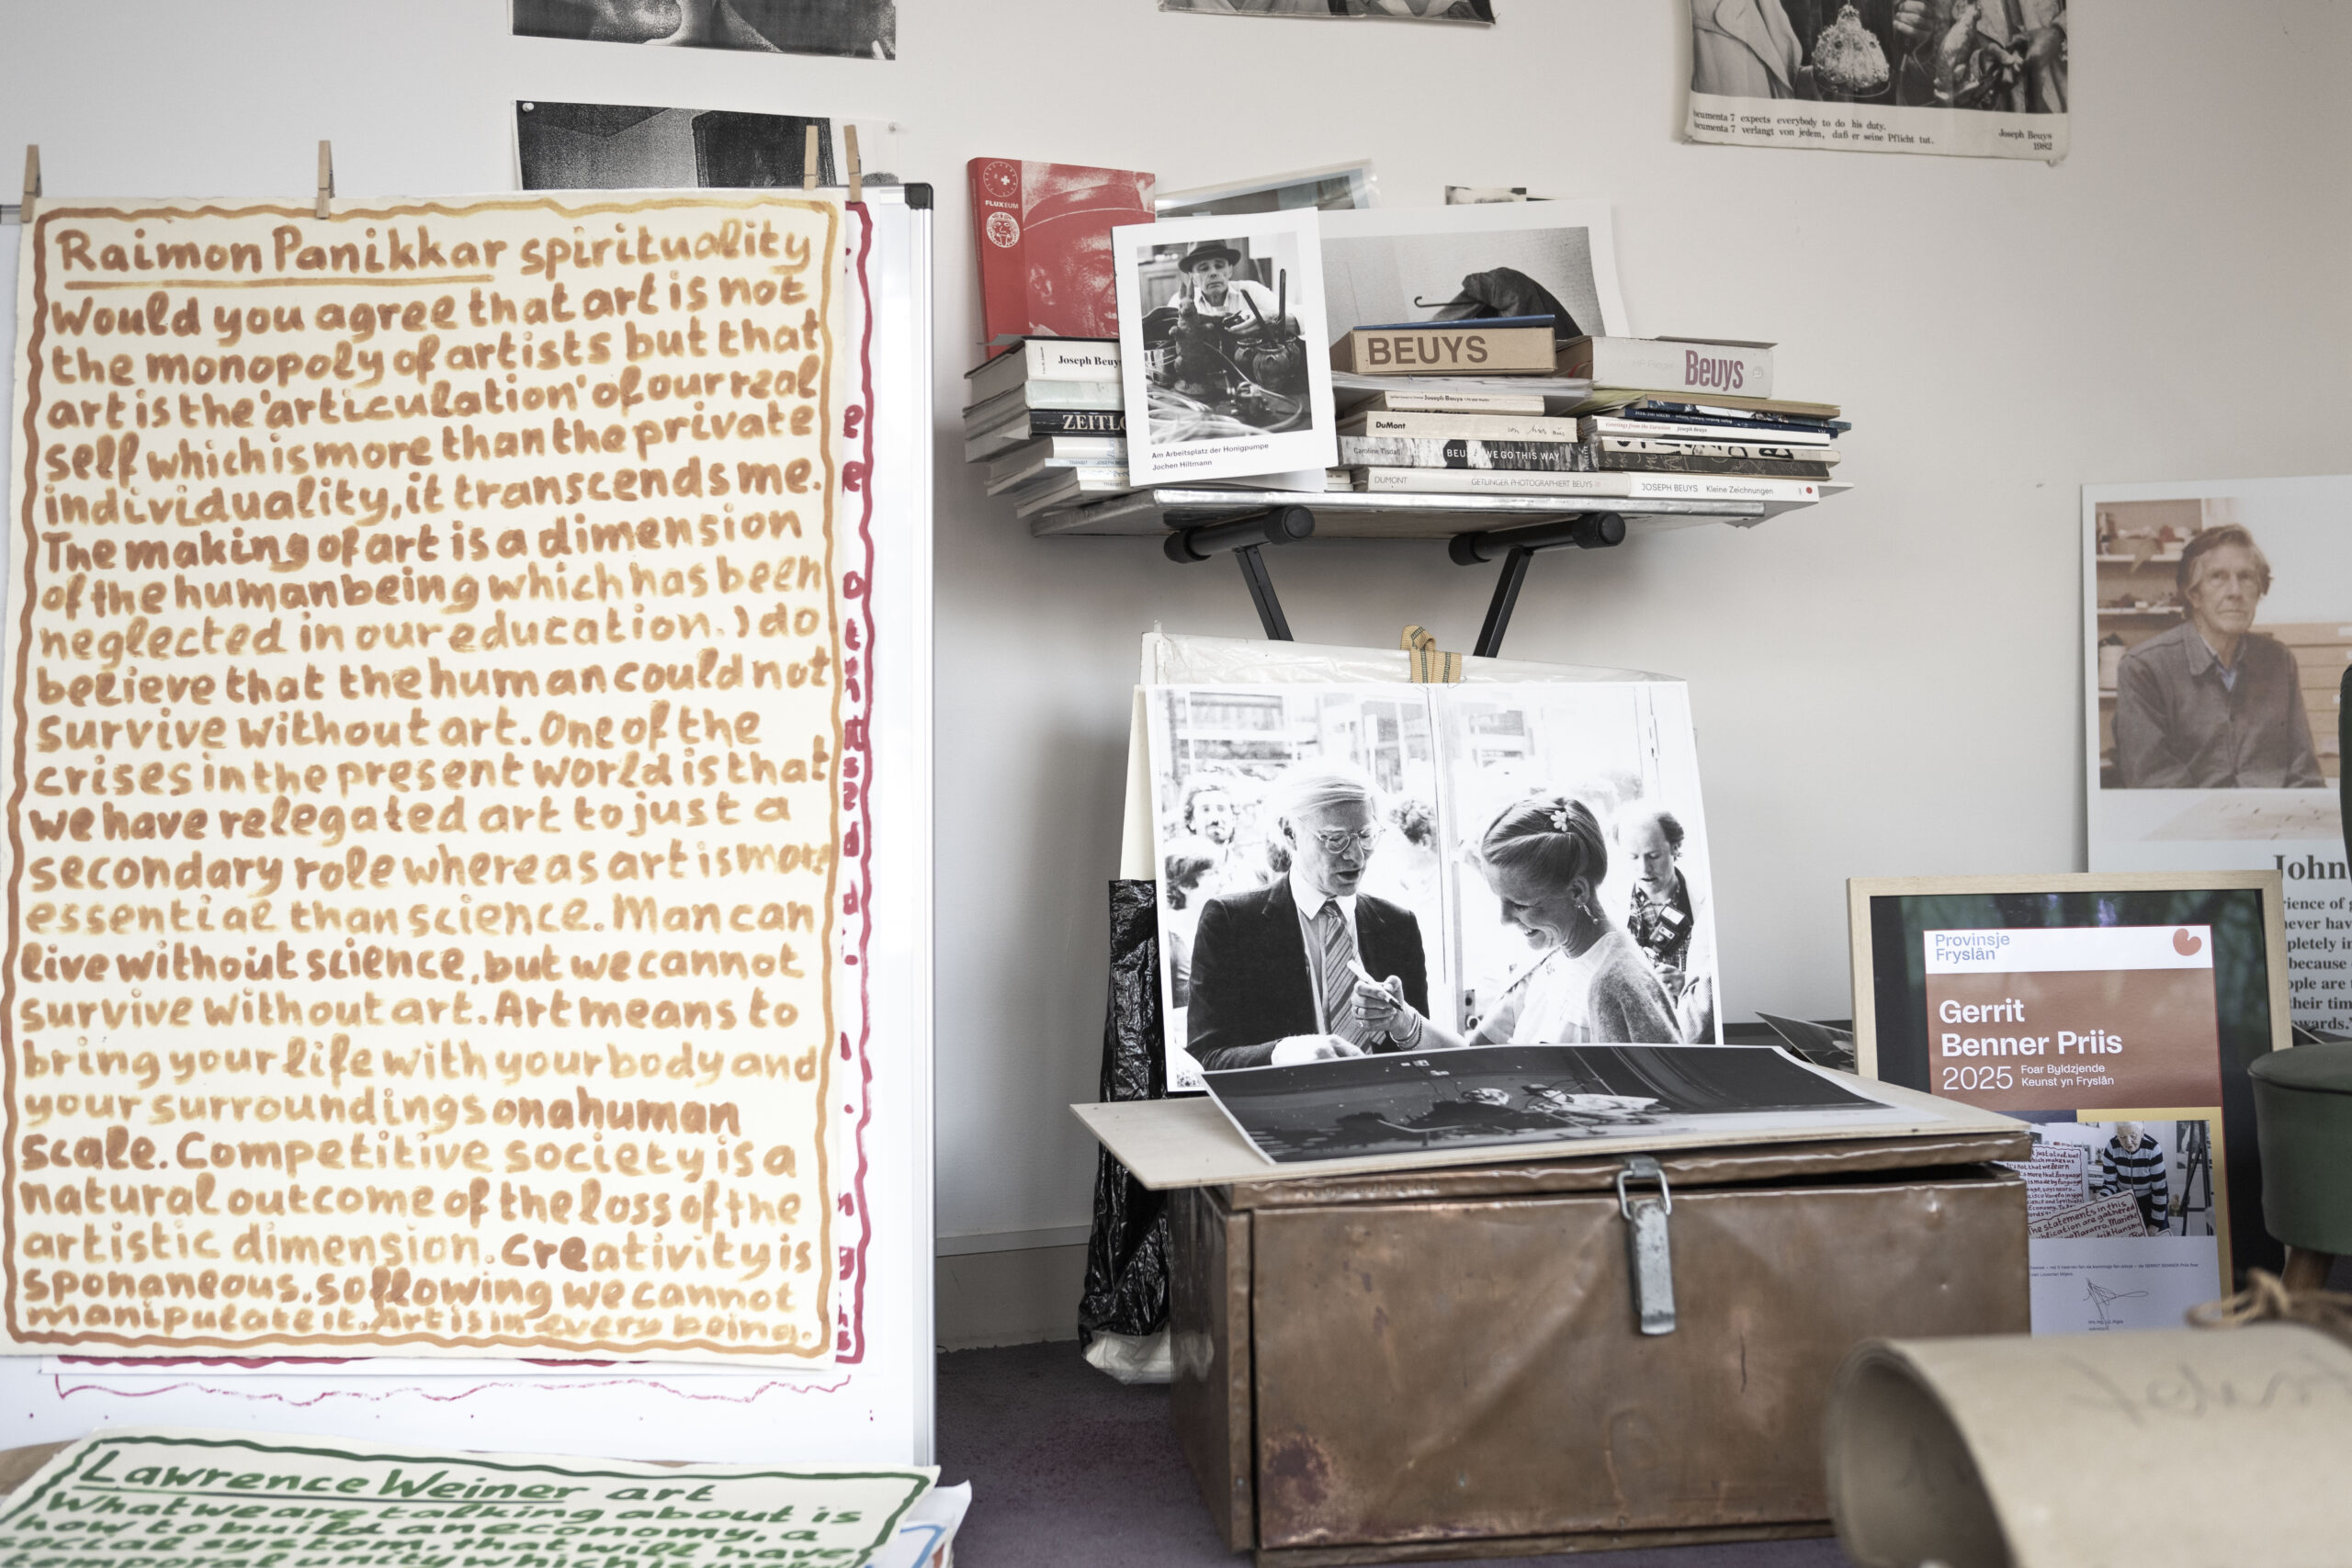 Raimon Panikkar spirituality
Would you agree that art is not
the monopoly of artists but that
art is the 'articulation' of our real
self which is more than the private
individuality, it transcends me.
The making of art is a dimension
of the human being which has been
neglected in our education. I do
believe that the human could not
survive without art. One of the
crises in the present world is that
we have relegated art to just a
secondary role whereas art is more
essential than science. Man can
live without science, but we cannot
survive without art. Art means to
bring your life with your body and
your surroundings on a human
scale. Competitive society is a
natural outcome of the loss of the
artistic dimension. Creativity is
sponaneous. so following we cannot
manipulate it. Art is in every being.
Lawrence Weiner art
What we are talking about is
how to build an economy, a
social system, that will have
temporal unity which is
FLUXEUM
Joseph Beuys
ZEITLO
Am Arbeitsplatz der Honigpumpe
Jochen Hiltmann
BEUYS
Beuys
Joseph Beuys
DuMont
Caroline Tisdall
BEUYS WE GO THIS WAY
DUMONT
GETLINGER PHOTOGRAPHIERT BEUYS
JOSEPH BEUYS Kleine Zeichnungen
documenta 7 expects everybody to do his duty.
documenta 7 verlangt von jedem, daß er seine Pflicht tut.
Joseph Beuys
1982
John
rience of
never hav
pletely in
because
ople are
their tim
wards."
Provinsje
Fryslân
Gerrit
Benner Priis
2025
Foar Byldzjende
Keunst yn Fryslân
The statements in this
publication are gathered